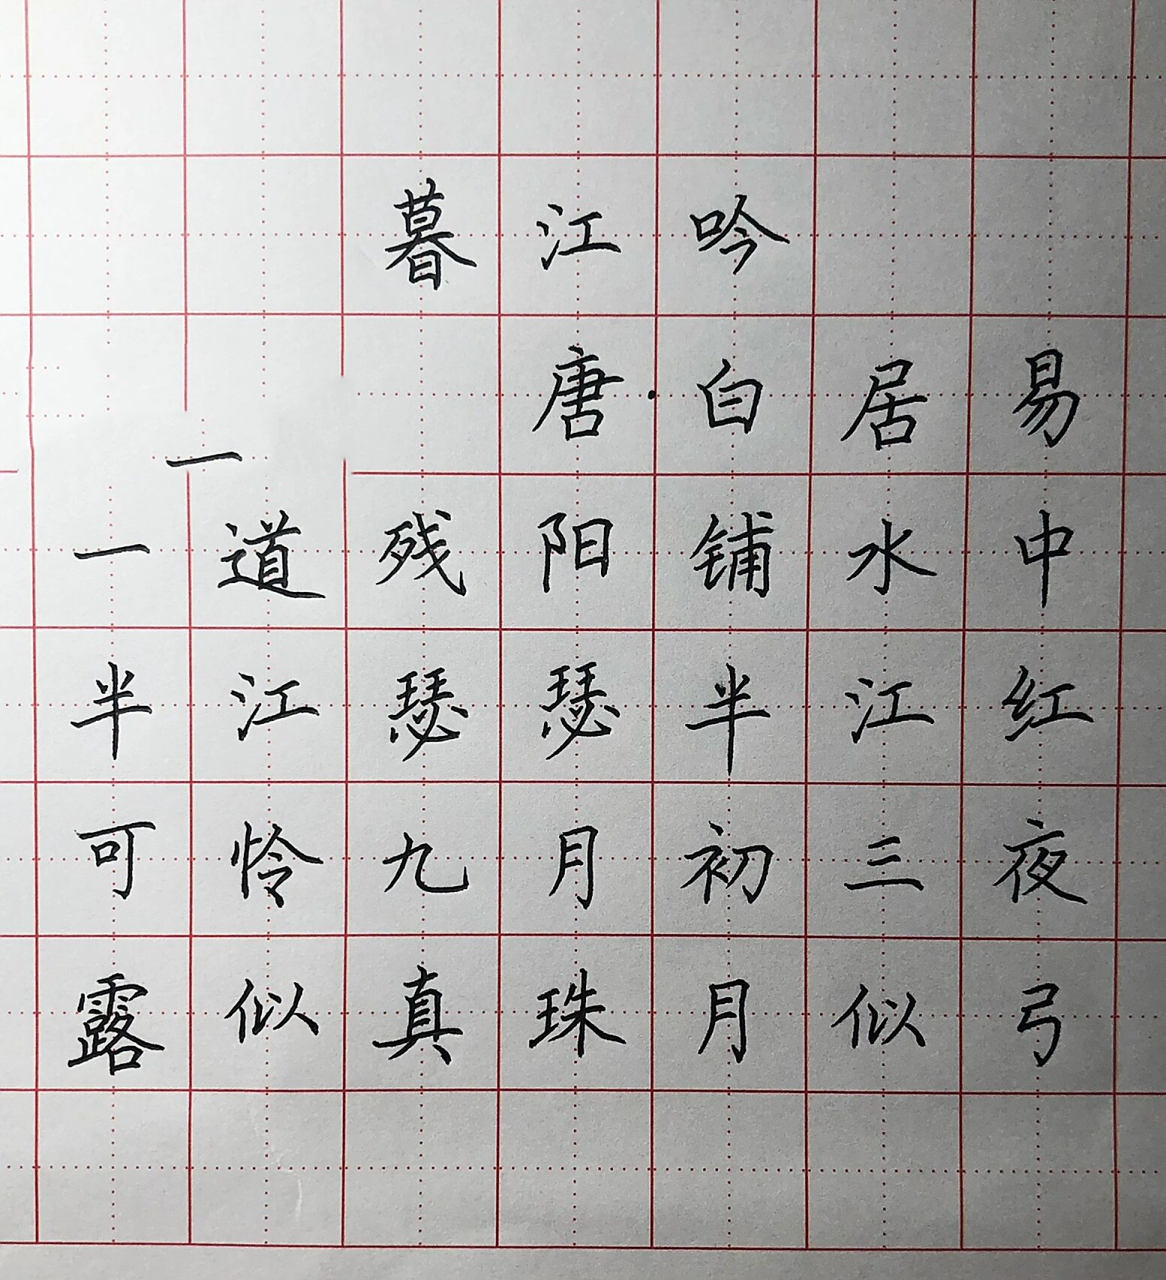 暮江吟
唐·白居易
一
一道残阳铺水中
半江瑟瑟半江红
可怜九月初三夜
露似真珠月似弓